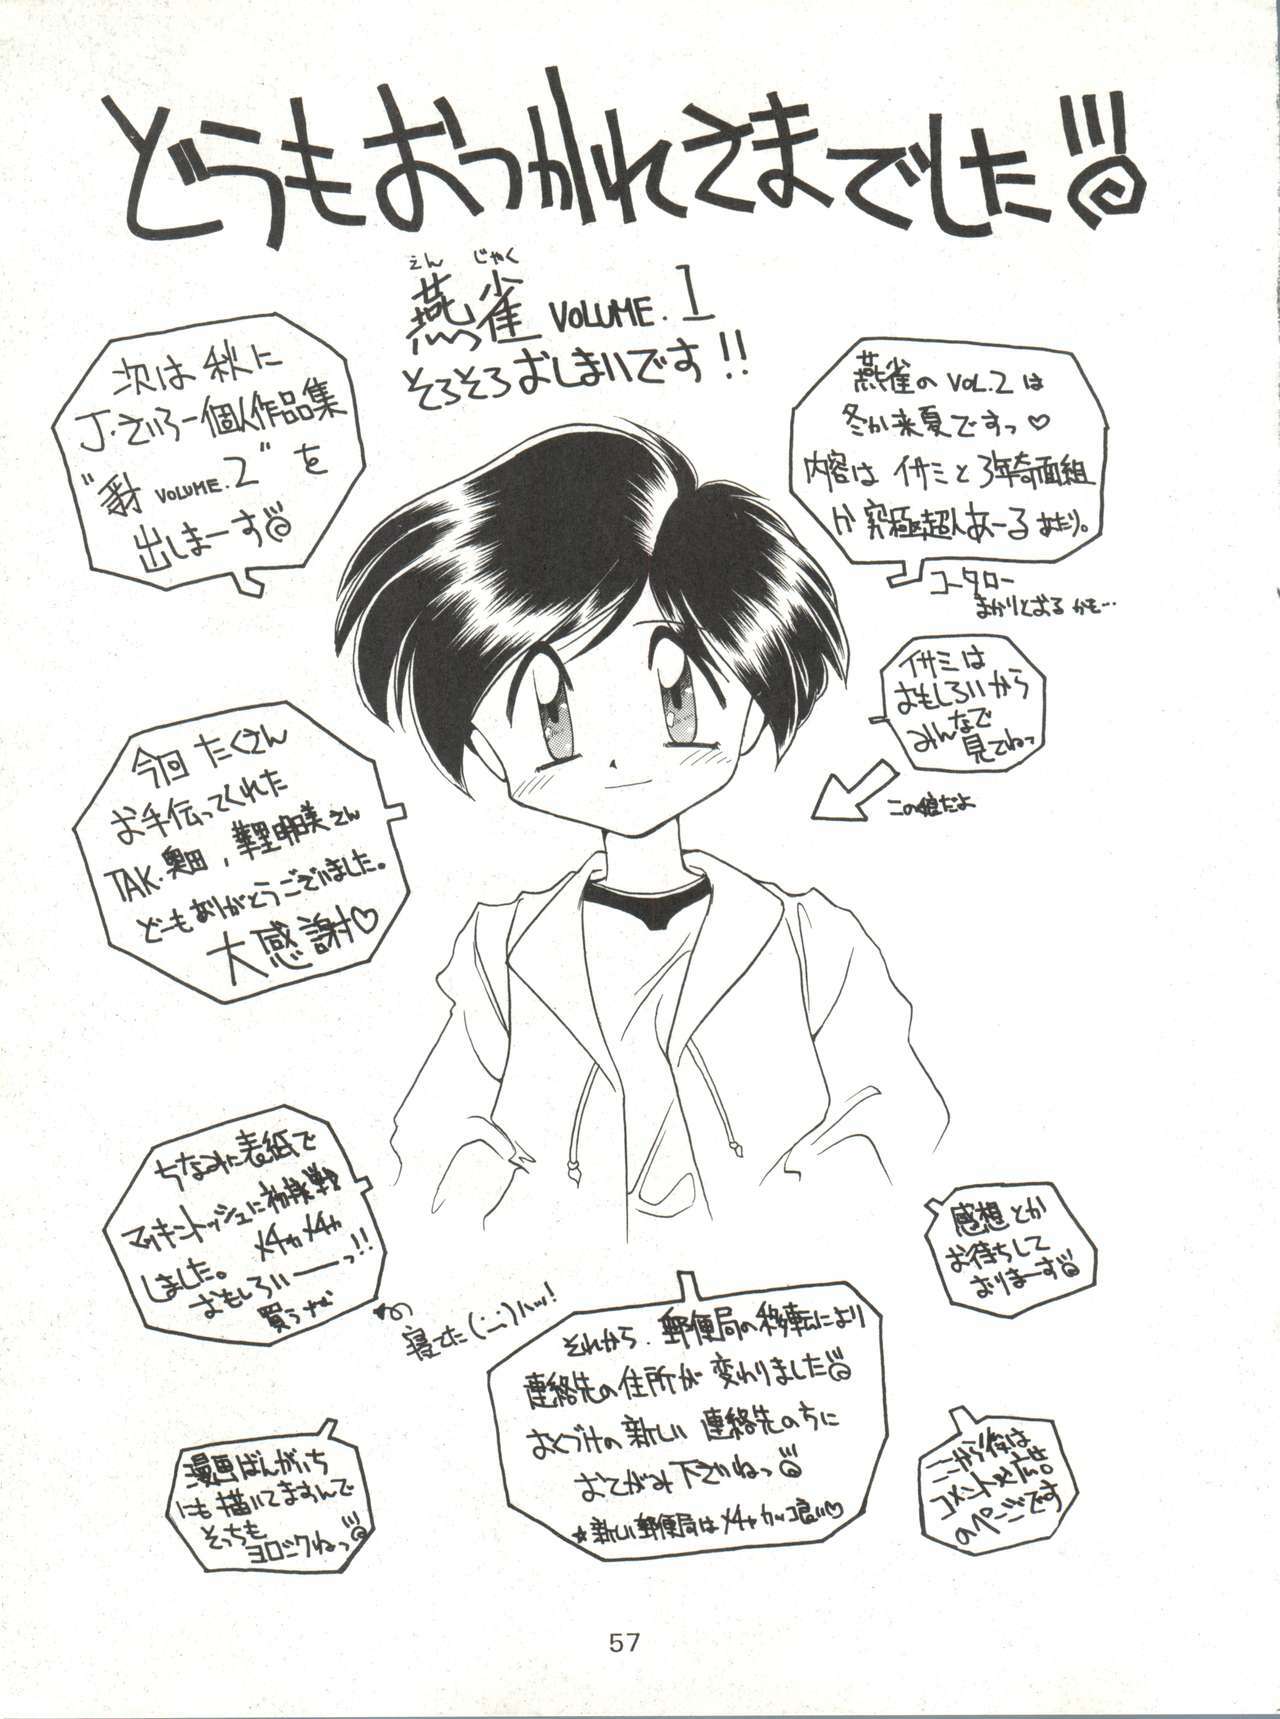 どうもおつかれさまでした!!!
えんじゃく
燕雀 VOLUME.1
そろそろおしまいです!!
次は秋に
J・さいろー個人作品集
VOLUME.2"を
出しまーす
燕雀のVOL.2は
冬か来夏ですっ♡
内容はイサミと3年奇面組
か究極超人あ〜るあたり。
コータロー
まかりとおるかも…
イサミは
おもしろいから
みんなで
見てねっ
この娘だよ
今回たくさん
お手伝ってくれた
TAK.奥田,
さん
どーもありがとうございました。
大感謝♡
ちなみに表紙で
マッキントッシュに初挑戦
しました。メチャメチャ
おもしろいーーっ!!
買うぞ
それから.郵便局の移転により
連絡先の住所が変わりました
おくづけの新しい連絡先のちに
おてがみ下さいねっ
☆新しい郵便局はメチャカッコ良い♡
感想とか
お待ちして
おりまーす
漫画ばんがいち
にも描いてますんで
そっちも
ヨロシクねっ
ここから後は
コメント&広告
のページです
57